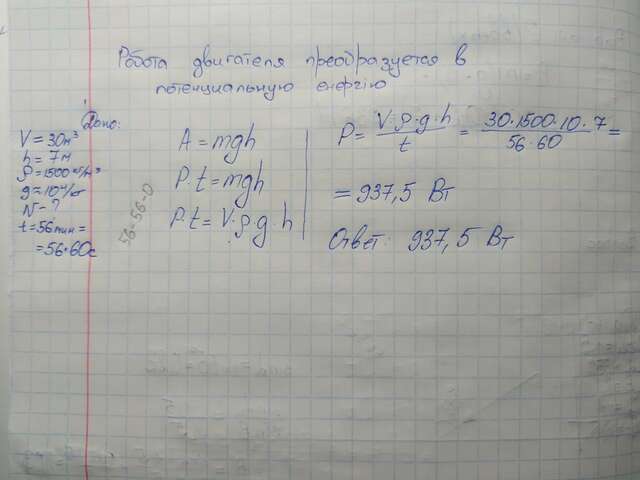 Робота двигателя преобразуется в
потенциальную енергію
Дано:
V = 30м³
h = 7м
ρ = 1500 кг/м³
g = 10 н/кг
N - ?
t = 56 мин =
= 56·60с
56=56-0
A = mgh
P·t = mgh
P·t = V·ρ·g·h
P = V·ρ·g·h / t = 30·1500·10·7 / 56·60 =
= 937,5 Вт
Ответ: 937,5 Вт